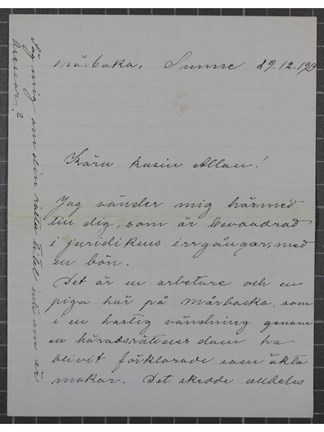 Mårbacka, Sunne 29.12.19
Kära kusin Allan!
Jag vänder mig härmed
till dig, som är bevandrad
i juridikens irrgångar, med
en bön.
Det är en arbetare och en
piga här på Mårbacka, som
i en hastig vändning genom
en häradsrättens dom ha
blivit förklarade som äkta
makar. Det skedde alldeles
Säg mig om din rätta titel